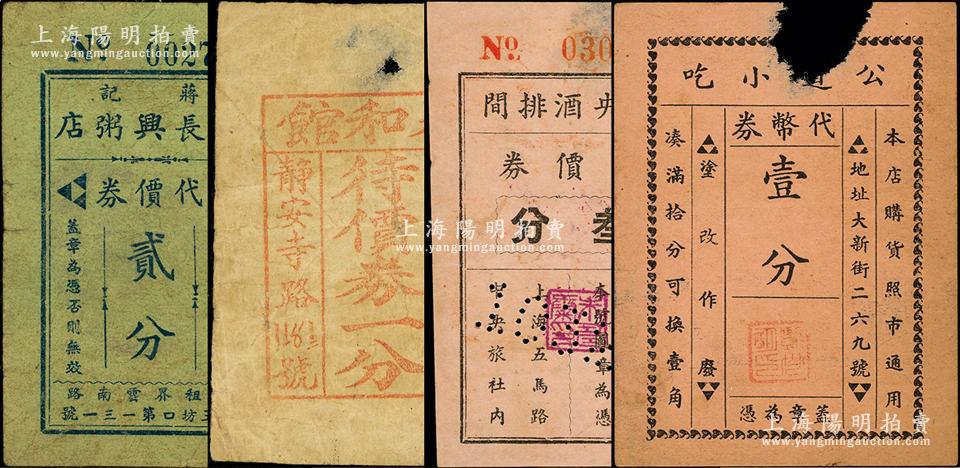 Nº 0027
蔣記
長興粥店
代價券
貳分
蓋章為憑否則無效
租界雲南路
坊口第一三一號
和館
待價券一分
靜安寺路1161號
Nº 030
央酒排間
價券
叁分
本號圖章為憑
上海五馬路
中央旅社內
公道小吃
本店購貨照市通用
地址大新街二六九號
代幣券
壹分
塗改作廢
湊滿拾分可換壹角
蓋章為憑
上海陽明拍賣
www.yangmingauction.com
上海陽明拍賣
www.yangmingauction.com
上海陽明拍賣
www.yangmingauction.com